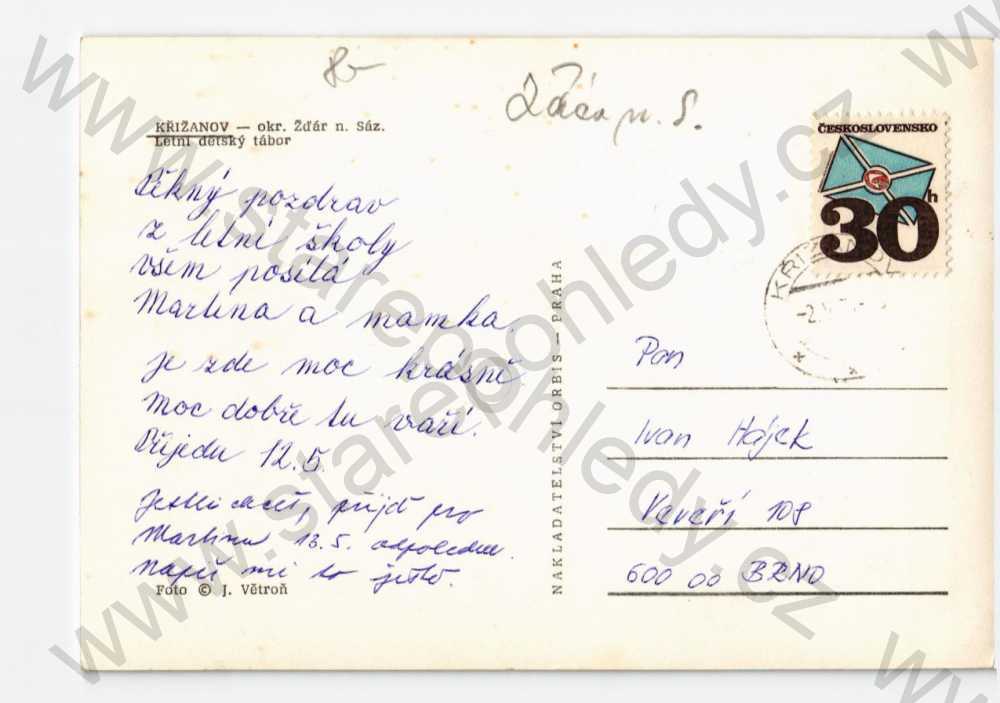 8-
Žďár n. S.
KŘIŽANOV — okr. Žďár n. Sáz.
Letní dětský tábor
ČESKOSLOVENSKO
30h
Pěkný pozdrav
z letní školy
všem posílá
Martina a mamka.
Je zde moc krásně
moc dobře tu vaří.
Přijedu 12.5.
Jestli chceš, přijď pro
Martinu 13.5. odpoledne.
Napiš mi to ještě.
Foto © J. Větroň
NAKLADATELSTVÍ ORBIS — PRAHA
Pan
Ivan Hájek
Veveří 108
600 00 BRNO
www.starepohledy.cz
www.starepohledy.cz